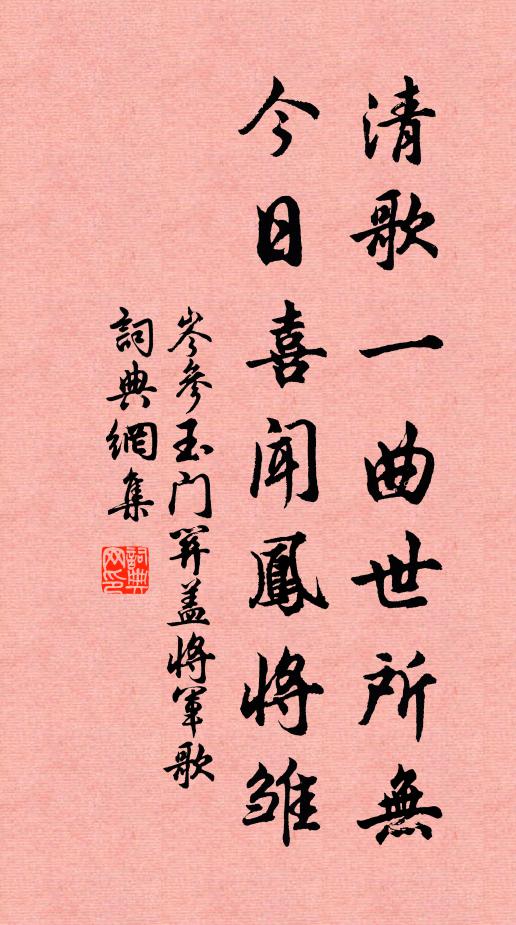 清歌一曲世所無
今日喜聞鳳將雛
岑參玉门关盖将军歌
詞典網集
詞典网印